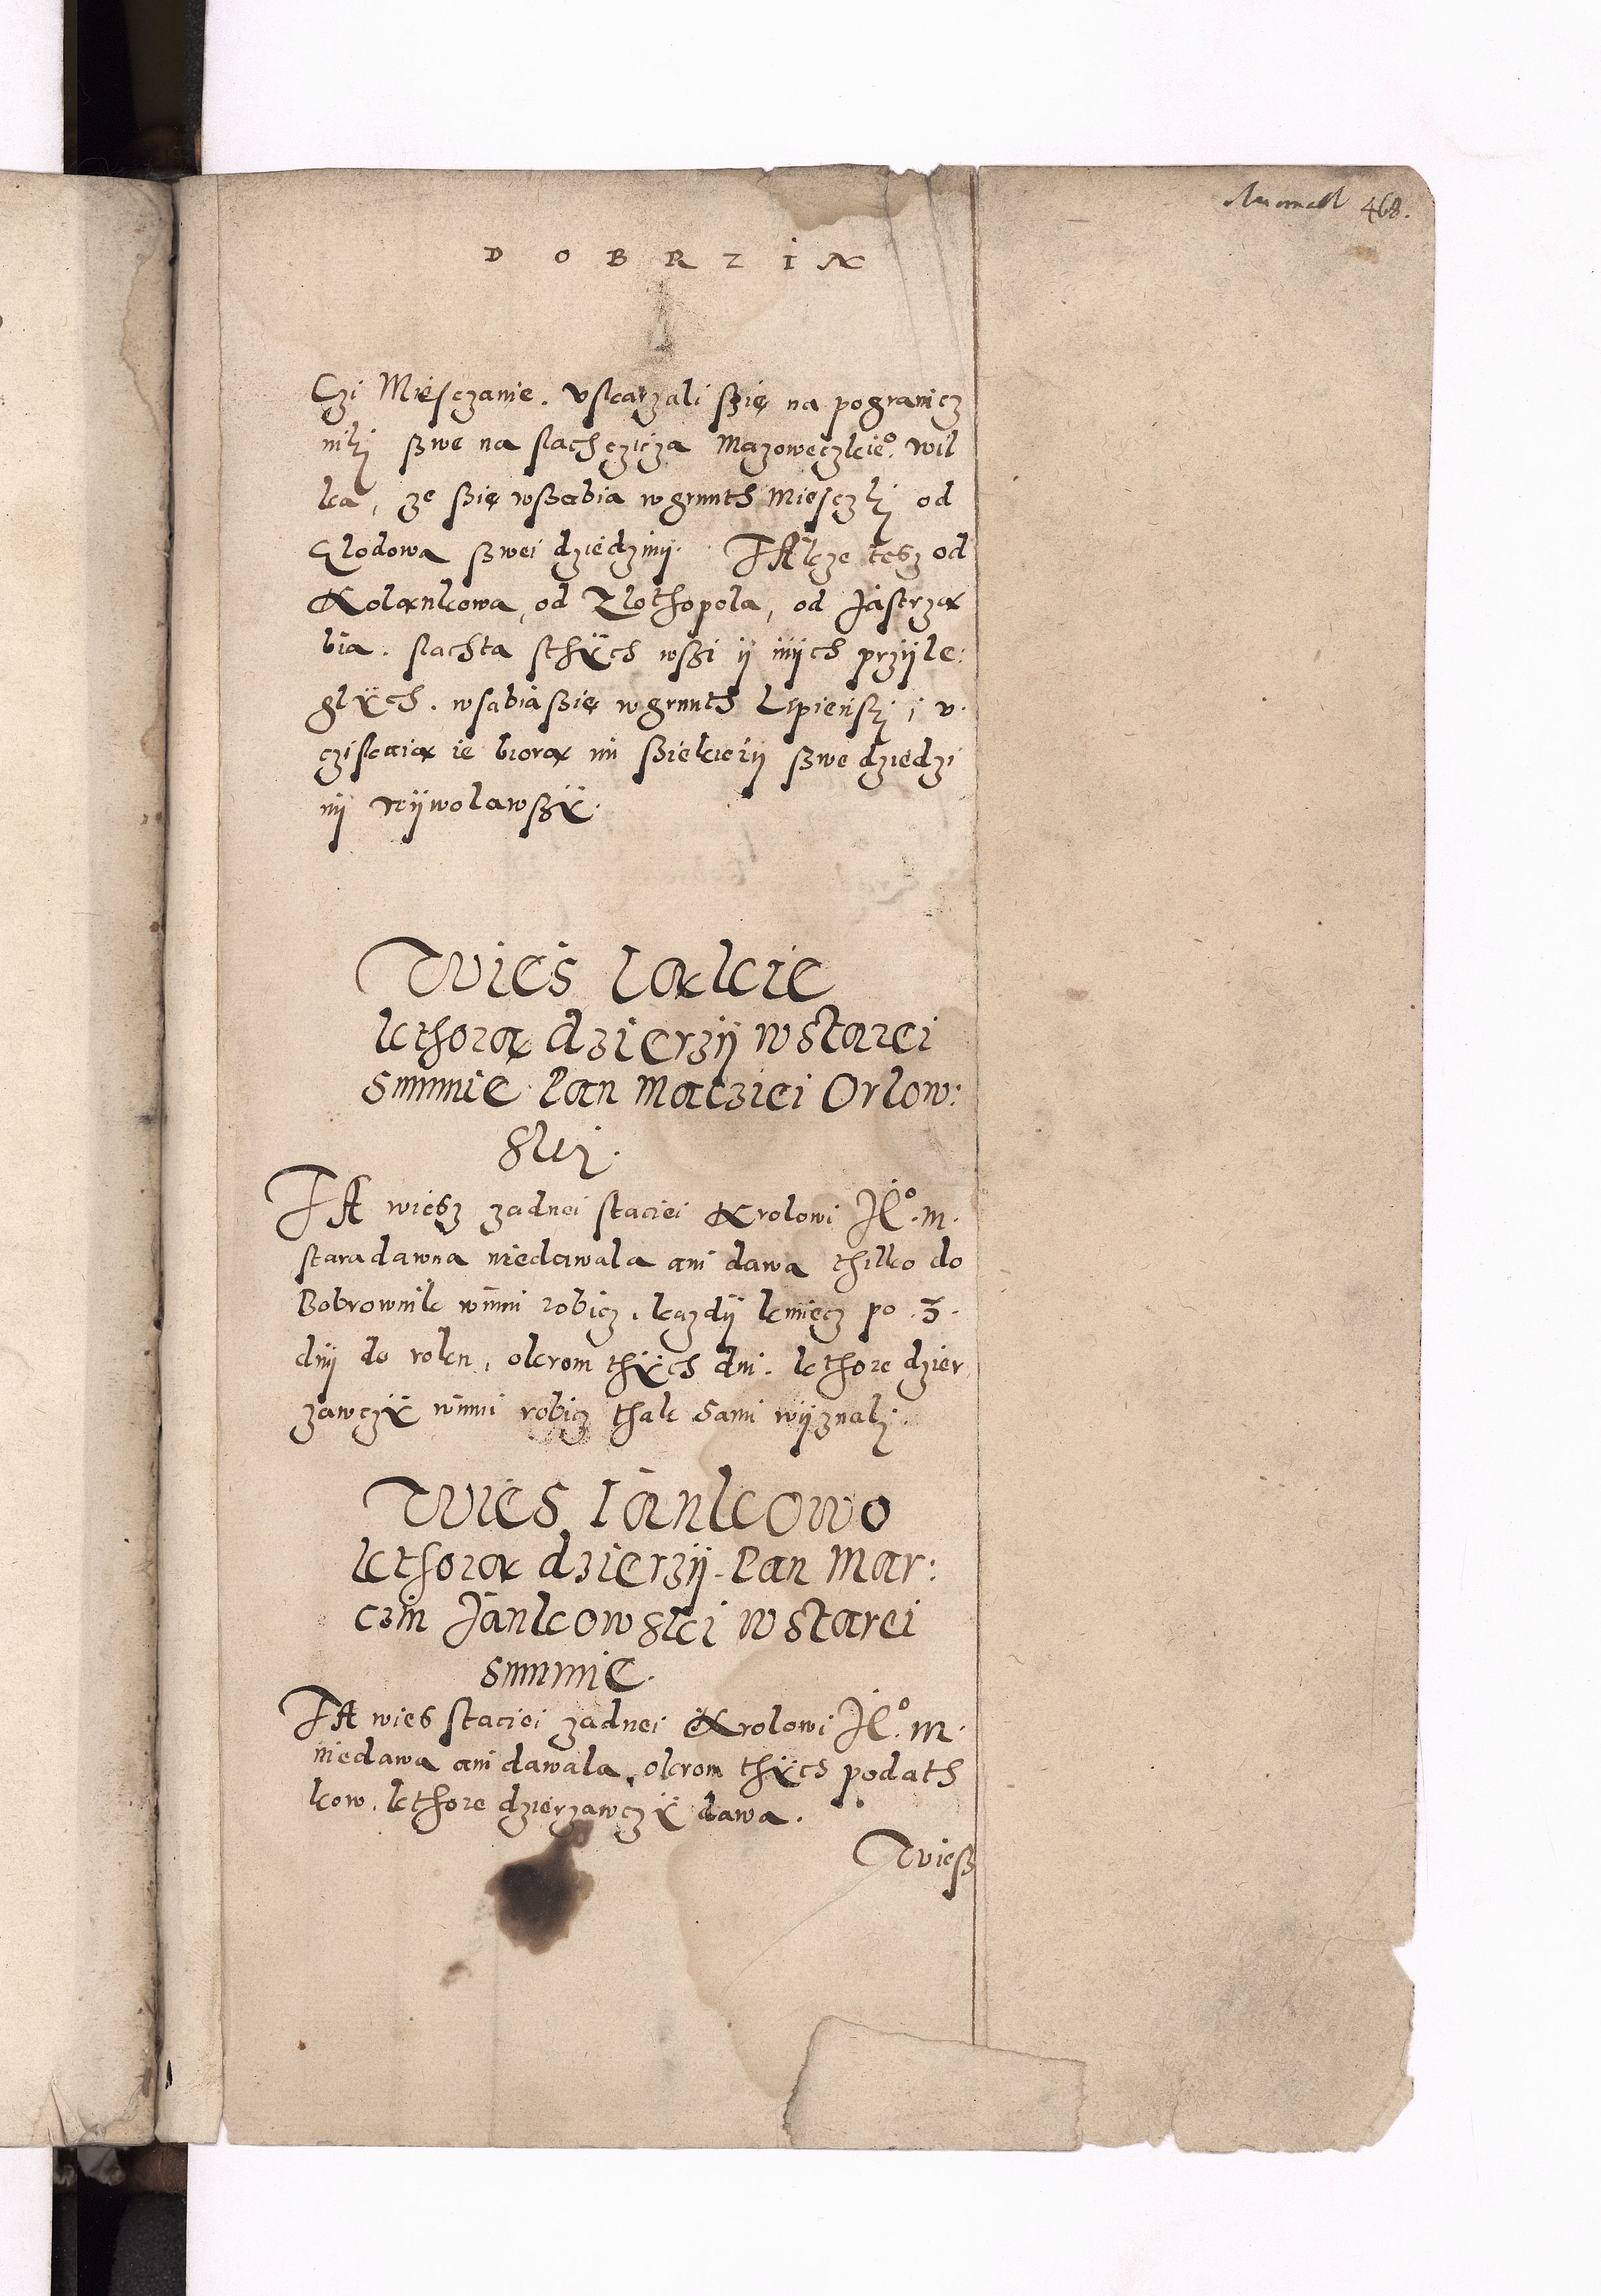 468.
D O B R Z I N
Czi Miesczanie. vskarzali sßię na pogranicz
niki sßwe na slachczicza Mazoweczkie°. wil
ka, ze sßię wsßabia w grunth Mieiſczki od
Głodowa sßwei dziedzinÿ. TAkze tesz od
Kolankowa, od Zlothopola, od Jastrzą
bia. slachta sthÿch wsßi ÿ inÿch przÿle:
glÿch. wsabia sßię w grunth Lipiensßki i v.
cziskaią ie biorą im sßiekierÿ sßwe dziedzi
nÿ wÿwolawsßÿ.
Wies Iąkie
kthorą dzierzÿ w starei
summie Pan Maciei Orlow:
ski.
TA wiesz zadnei staciei Krolowi Je°. m.
staradawna niedawala ani dawa thilko do
Bobrownik winni robicz. kazdÿ kmięcz po .3.
dnÿ do roku, okrom thÿch dni. kthore dzier
zawczÿ winni robicz thak sami wÿznali.
Wies Iankowo
kthorą dzierzÿ Pan Mar:
czin Jankowski w starei
summie.
TA wies staciei zadnei Krolowi Je°. m.
niedawa ani dawala, okrom thÿch podath
kow. kthore dzierzawczÿ dawa.
Wiesß